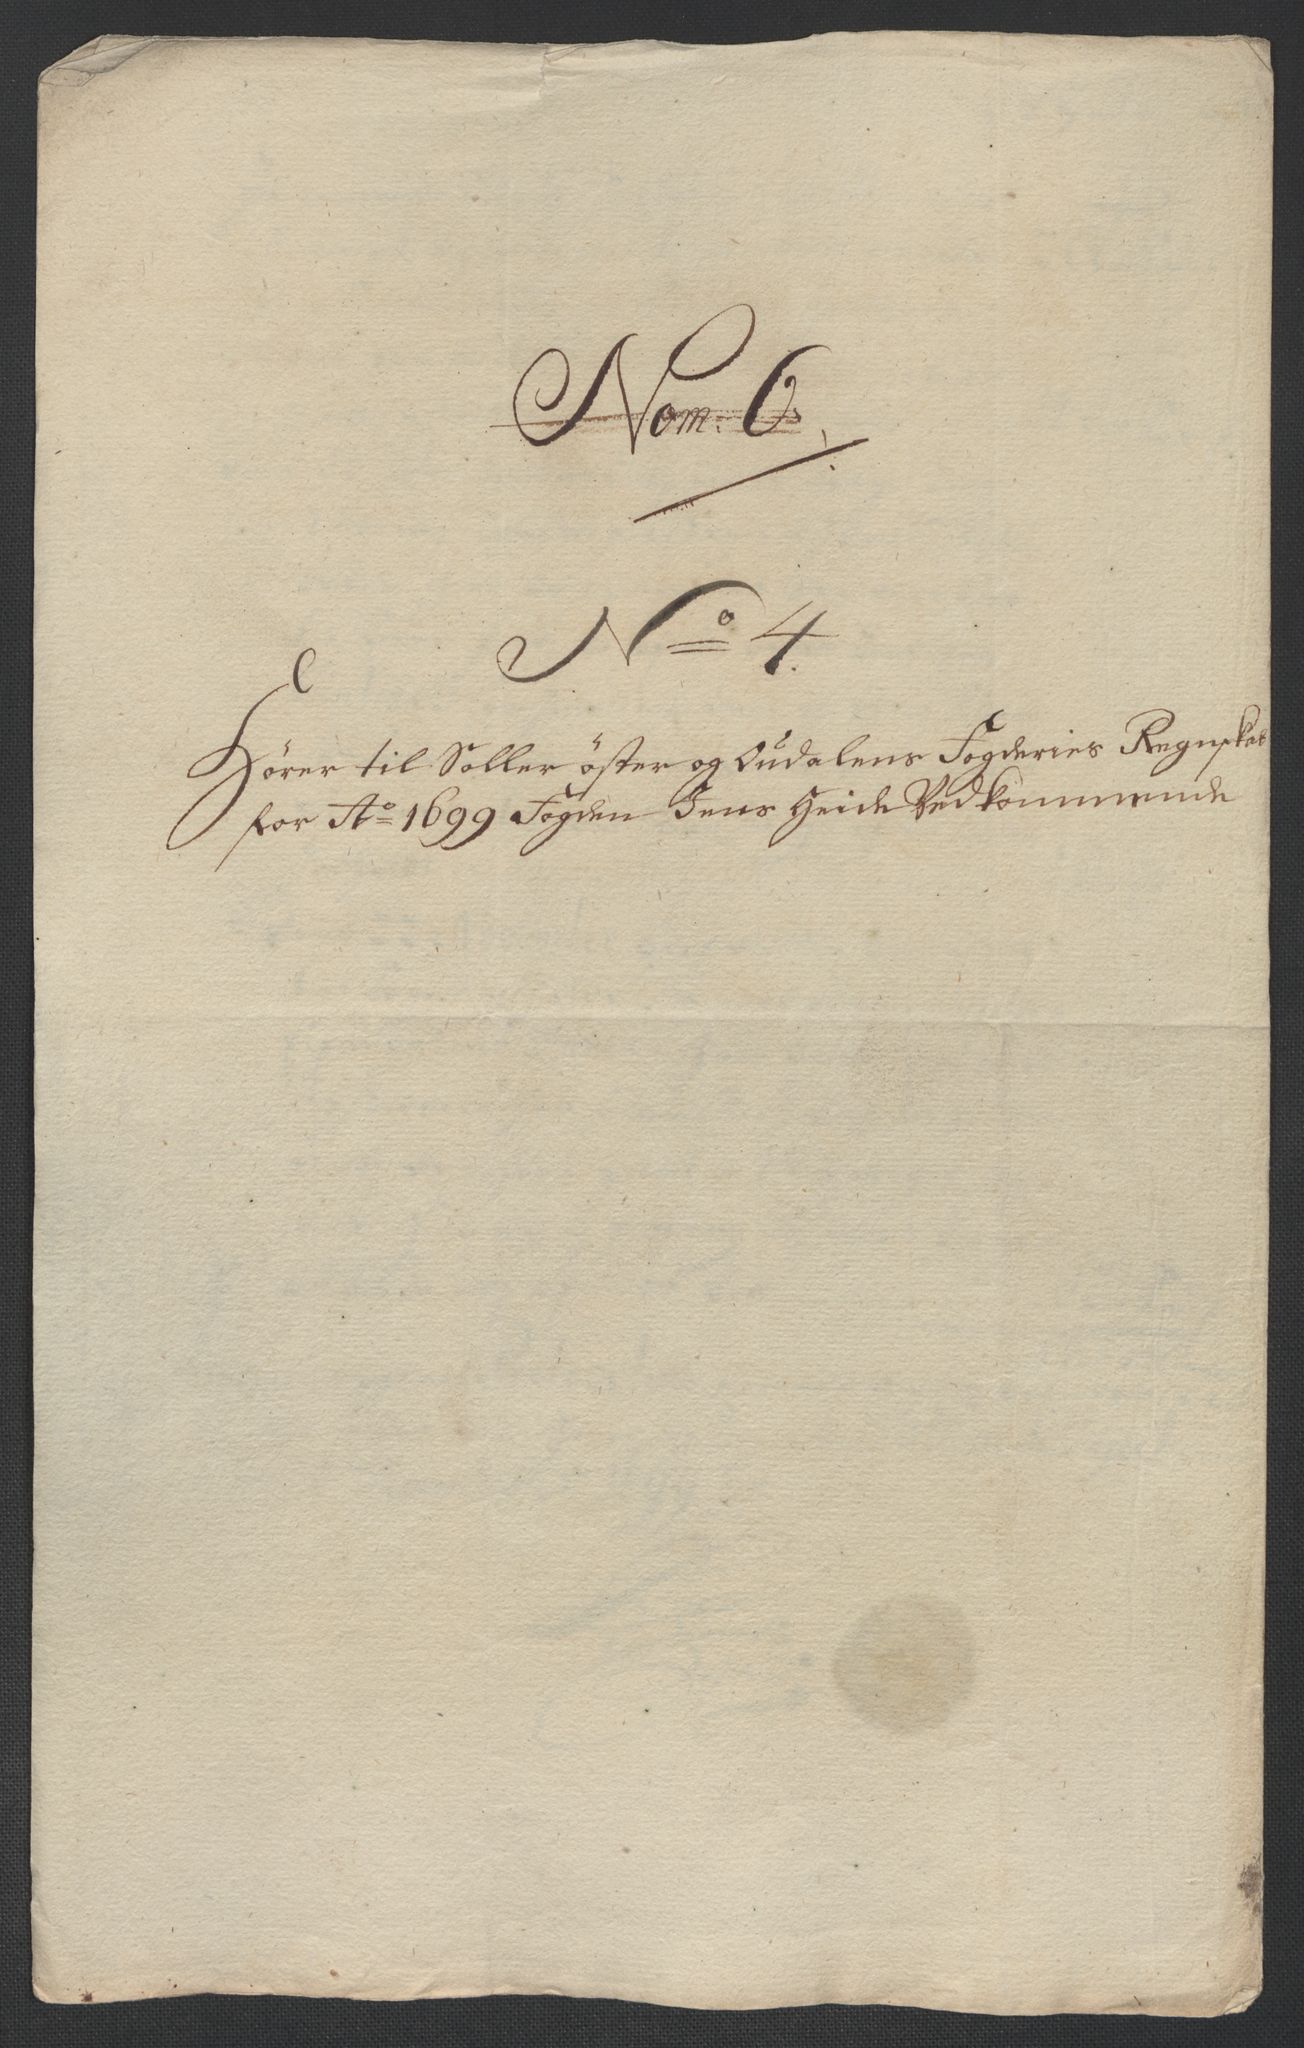 Nom: 6.
No 4.
Hörer til Soller öster og Oudalens Fogderies Regnskab
for Ao 1699 Fogden Jens Heide Vedkommende